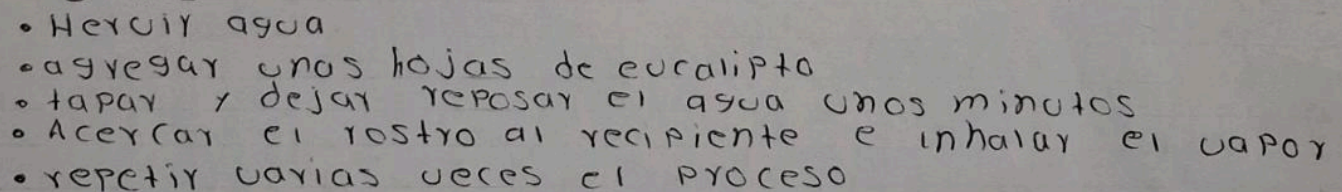 • Hervir agua
• agregar unas hojas de eucalipto
• tapar y dejar reposar el agua unos minutos
• Acercar el rostro al recipiente e inhalar el vapor
• repetir varias veces el proceso